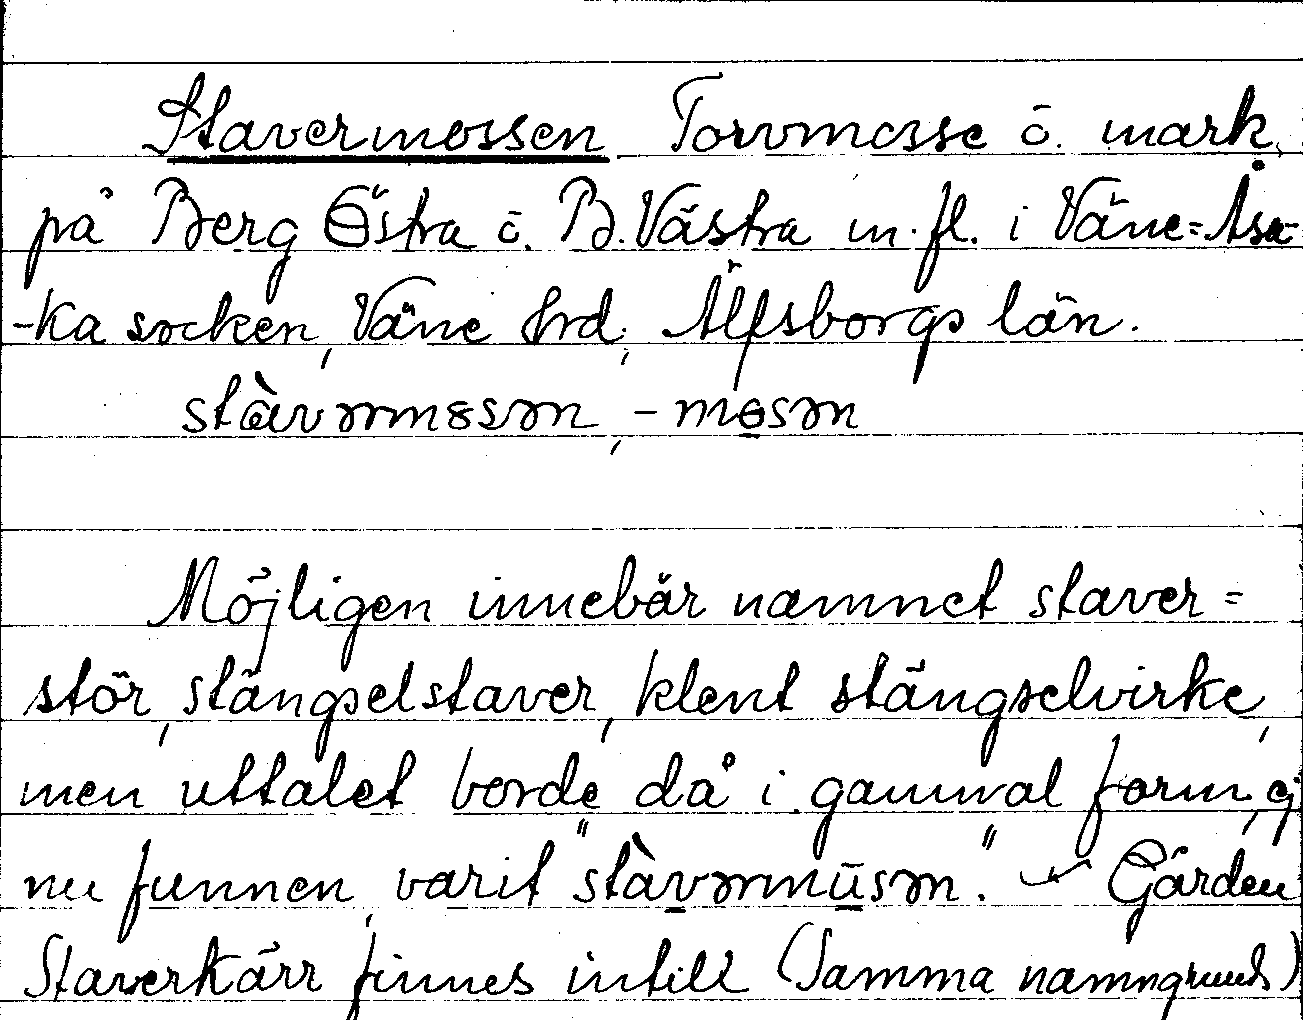 Stavermossen Torvmosse o. mark,
på Berg Östra o. B. Västra m. fl. i Väne=Åsa-
-ka socken, Väne hrd, Älfsborgs län.
stàvərmosən, -mosən
Möjligen innebär namnet staver=
stör, stängselstaver, klent stängselvirke,
men uttalet borde då i gammal form, ej
nu funnen, varit "stàvərmūsən." Gården
Staverkärr finnes intill (Samma namngrund)